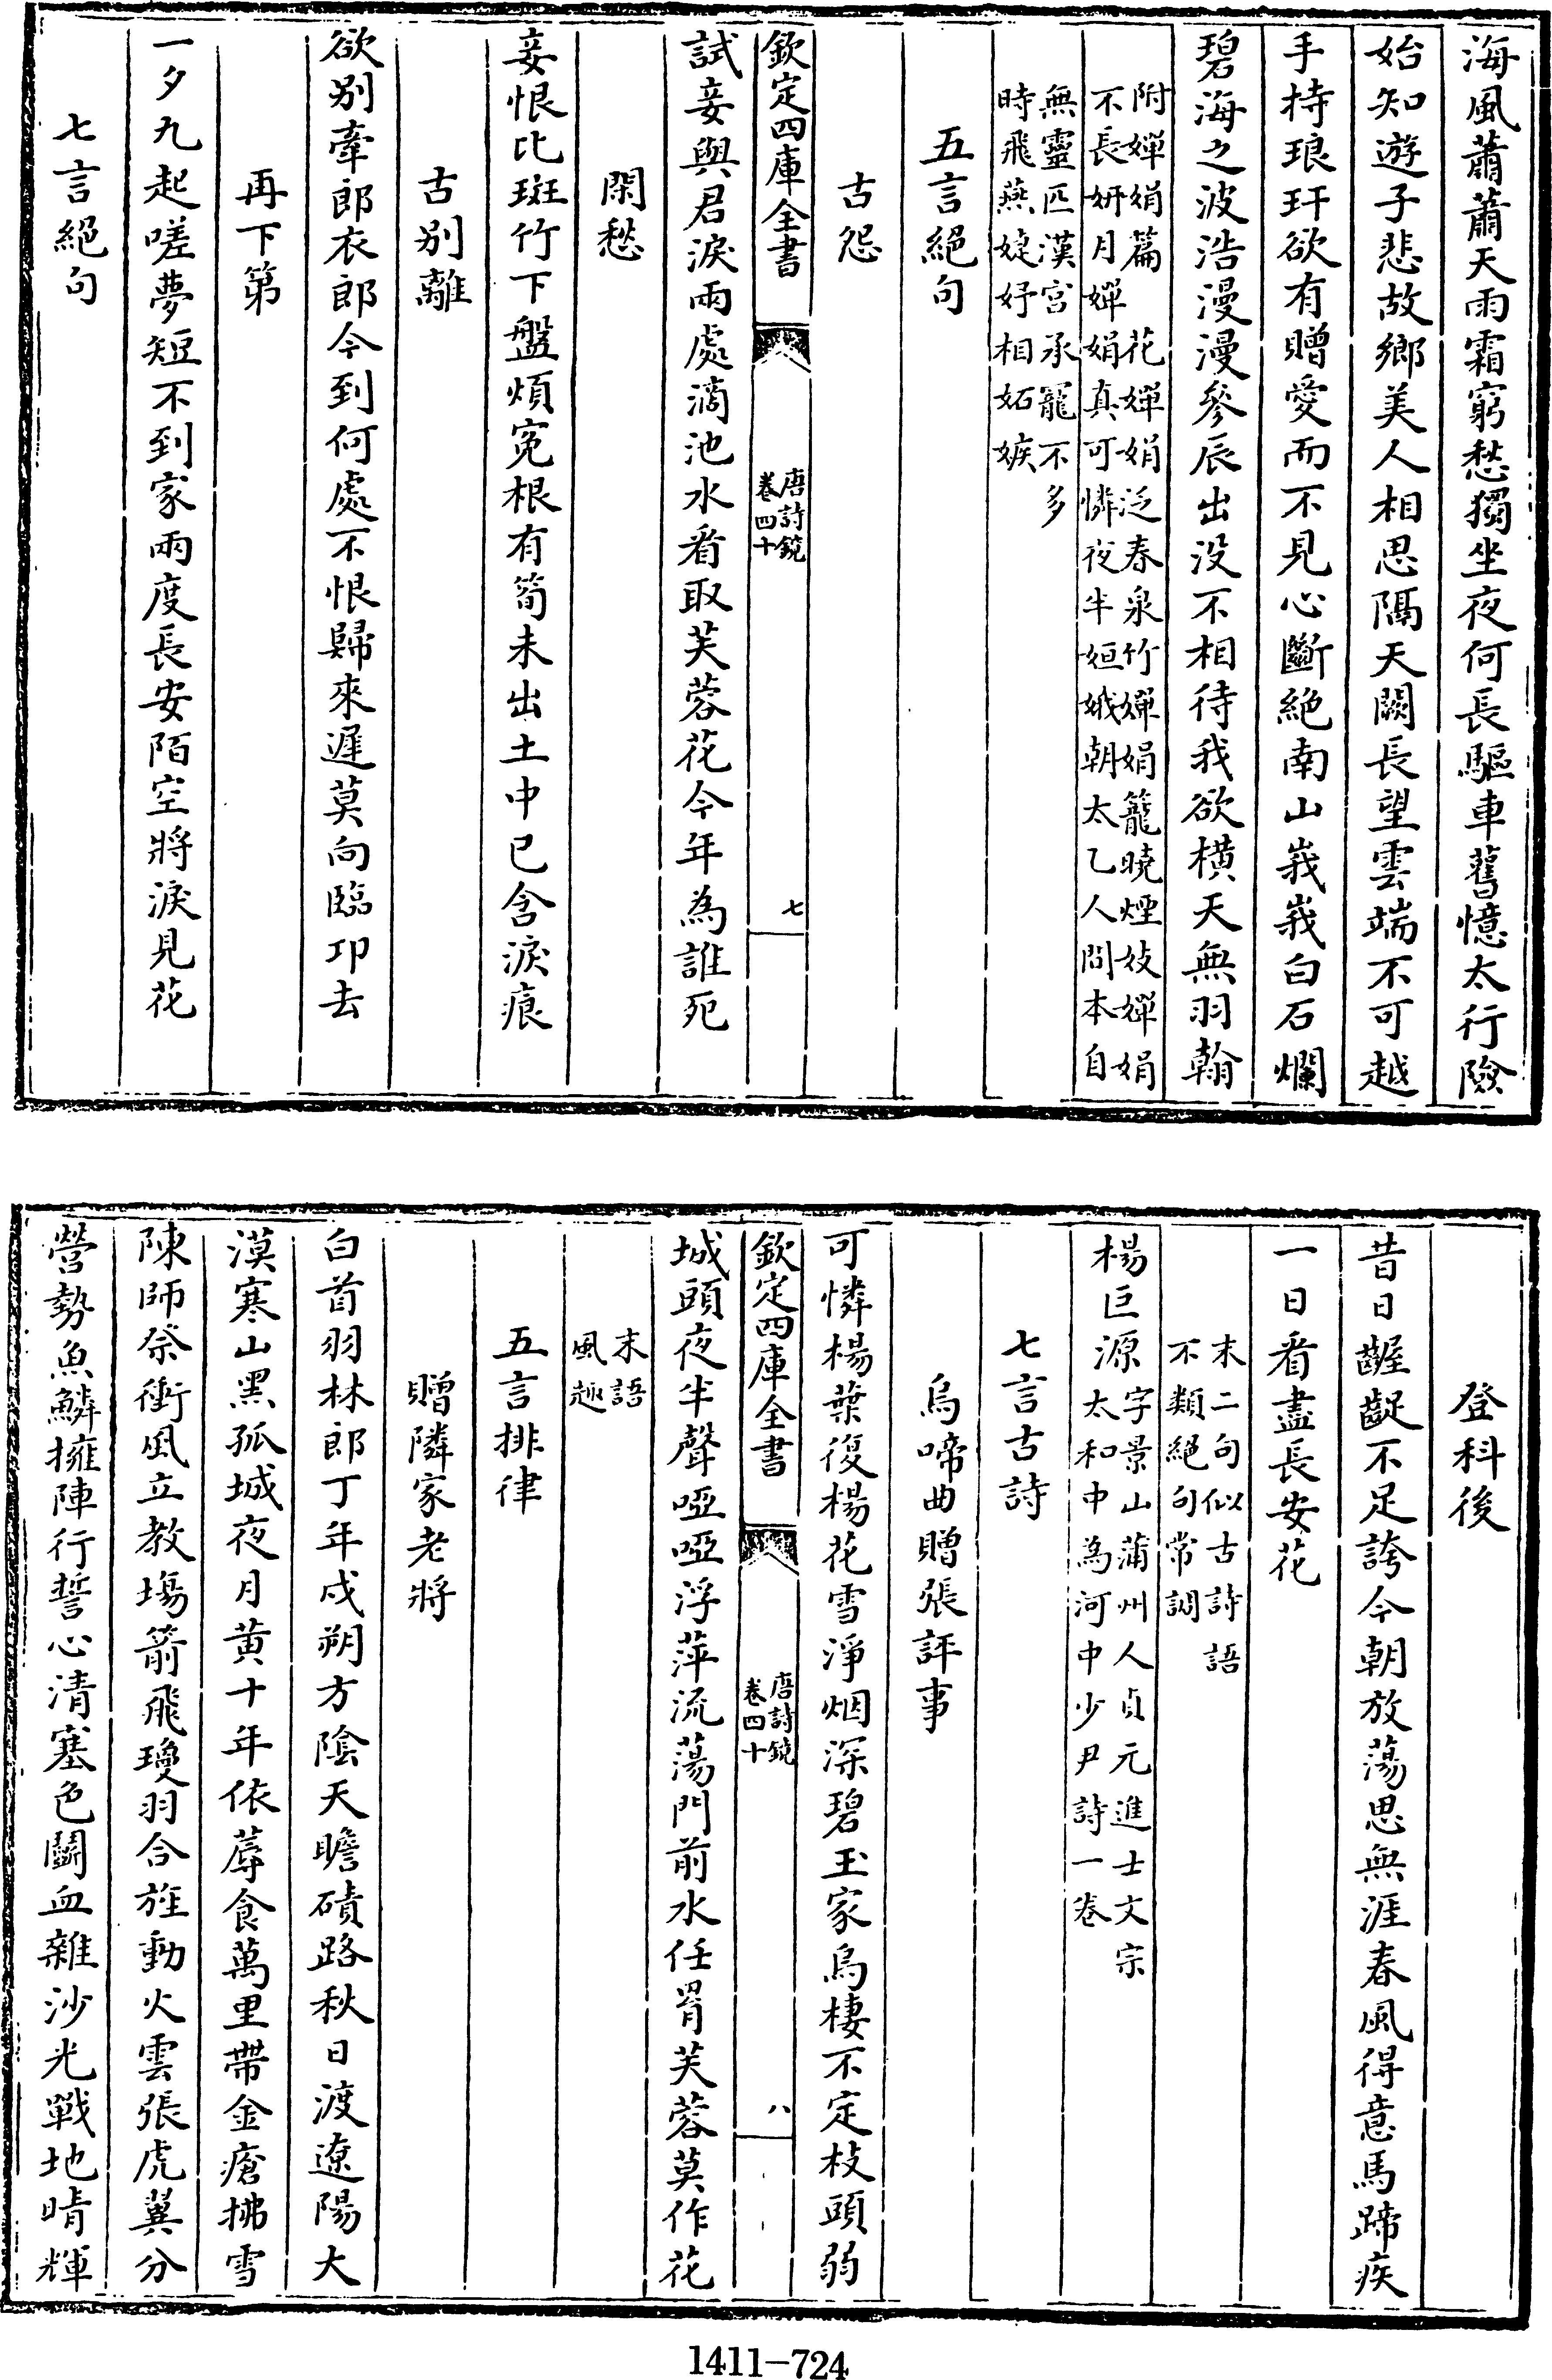 海風蕭蕭天雨霜窮愁獨坐夜何長驅車舊憶太行險
始知遊子悲故鄉美人相思隔天闕長望雲端不可越
手持琅玕欲有贈愛而不見心斷絕南山峩峩白石爛
碧海之波浩漫漫參辰出没不相待我欲横天無羽翰
附嬋娟篇　花嬋娟泛春泉竹嬋娟籠曉煙妓嬋娟
不長妍月嬋娟真可憐夜半姮娥朝太乙人間本自
無靈匹漢宮承寵不多
時飛燕婕妤相妬嫉
五言絕句
古怨
欽定四庫全書
唐詩鏡
卷四十
七
試妾與君淚兩處滴池水看取芙蓉花今年為誰死
閑愁
妾恨比斑竹下盤煩寃根有筍未出土中已含淚痕
古别離
欲别牽郎衣郎今到何處不恨歸來遲莫向臨邛去
再下第
一夕九起嗟夢短不到家兩度長安陌空將淚見花
七言絕句
登科後
昔日齷齪不足誇今朝放蕩思無涯春風得意馬蹄疾
一日看盡長安花
末二句似古詩語
不類絕句常調
楊巨源
字景山蒲州人貞元進士文宗
太和中為河中少尹詩一卷
七言古詩
烏啼曲贈張評事
可憐楊葉復楊花雪淨烟深碧玉家烏棲不定枝頭弱
欽定四庫全書
唐詩鏡
卷四十
八
城頭夜半聲啞啞浮萍流蕩門前水任罥芙蓉莫作花
末語
風趣
五言排律
贈隣家老將
白首羽林郎丁年戍朔方陰天瞻磧路秋日渡遼陽大
漠寒山黑孤城夜月黄十年依蓐食萬里帶金瘡拂雪
陳師祭衝風立教場箭飛瓊羽合旌動火雲張虎翼分
營勢魚鱗擁陣行誓心清塞色鬭血雜沙光戰地晴輝
1411-724